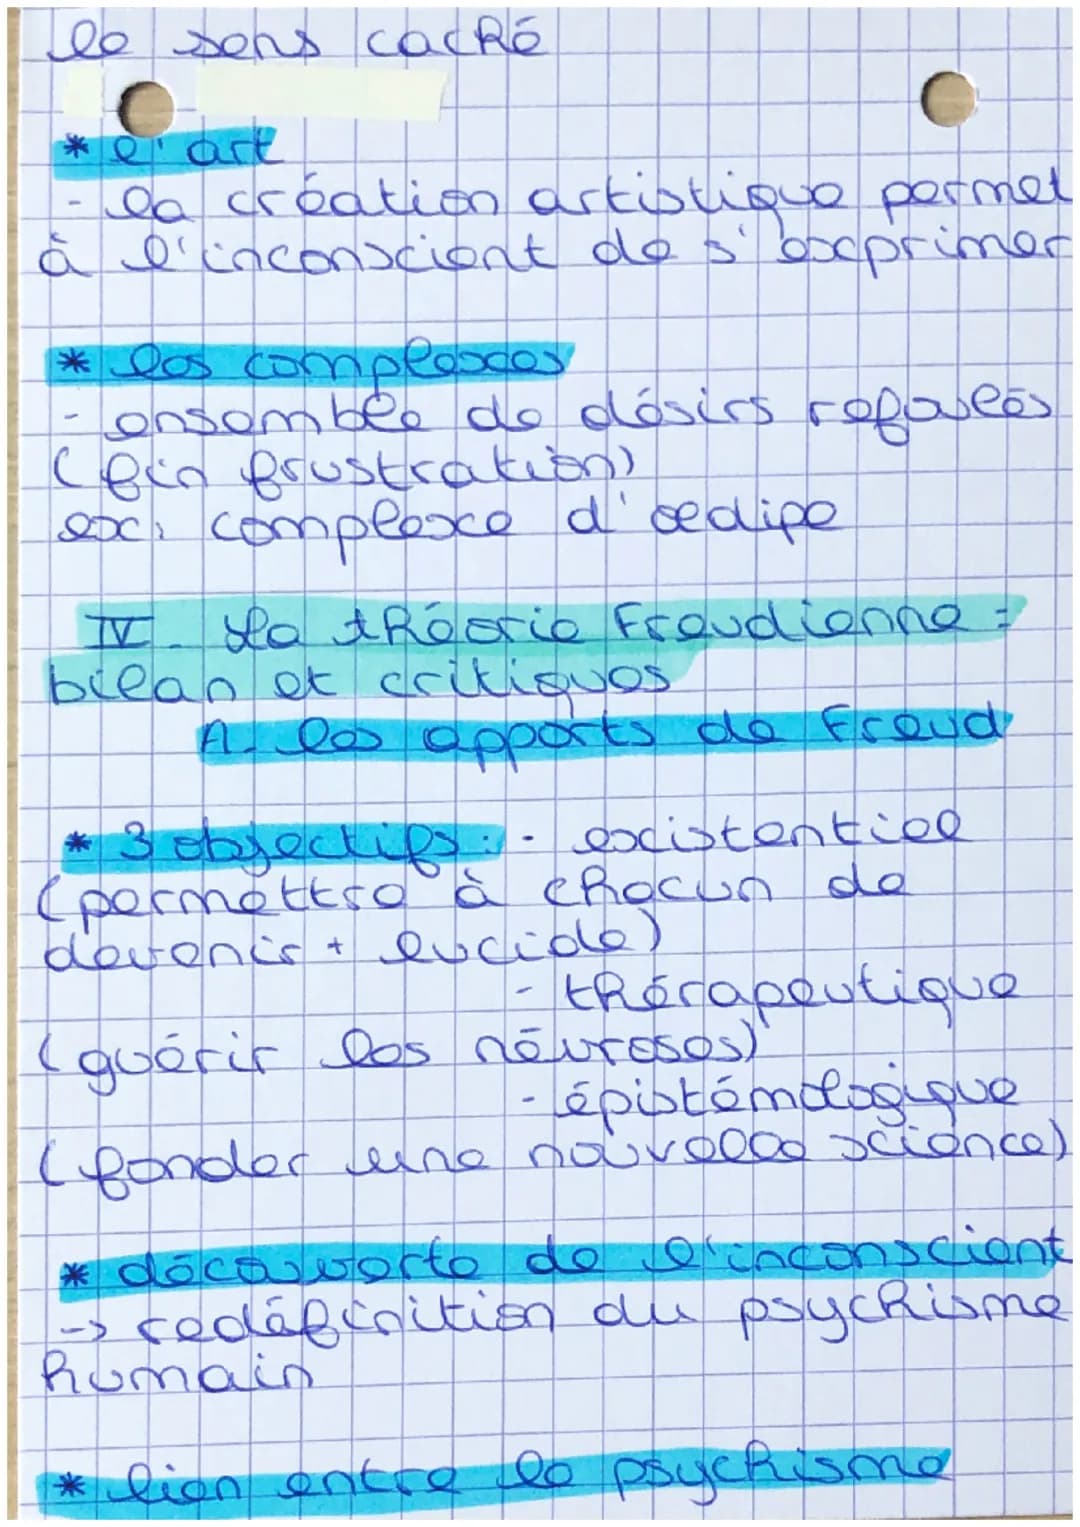 le sens caché
* l'art
- la création artistique permet
à l'inconscient de s'exprimer
* les complexes
- ensemble de désirs refoulés
(fin frustration)
ex: complexe d'oedipe
IV. La théorie Freudienne =
bilan et critiques
A. les apports de Freud
* 3 objectifs : - existentiel
(permettre à chacun de
devenir + lucide)
- thérapeutique
(guérir les névroses)
- épistémologique
(fonder une nouvelle science)
* découverte de l'inconscient
-> redéfinition du psychisme
humain
* lien entre le psychisme